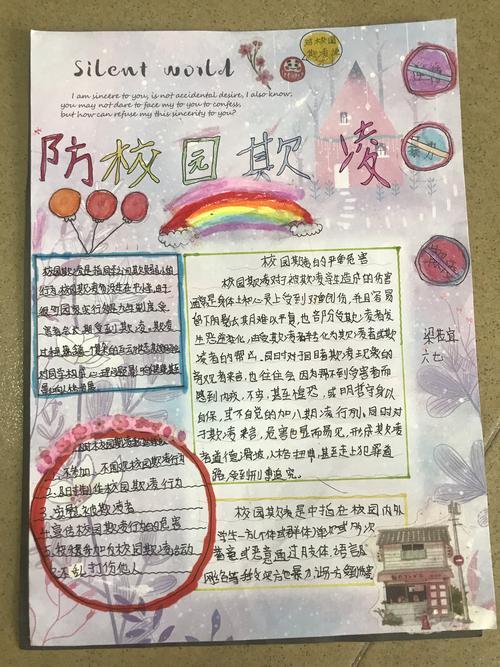 Silent world
I am sincere to you, is not accidental desire, I also know,
you may not dare to face my to you to confess,
but how can refuse my this sincerity to you?
对校园
欺凌说
暴力
防校园欺凌
梁芷宜
六七
校园欺凌是指同学间欺负弱小的
行为,校园欺凌多发生在中小学,由于
很多国家实行
会长期受到欺凌。欺凌
过程
对同学
校园欺凌的严重危害
校园欺凌对于被欺凌学生造成的伤害
通常是身体和心灵上受到双重创伤,并且容易
留下阴影长期难以平复,也有部分受欺凌者发
生恶逆变化,由受欺凌者转化为欺凌者或欺
凌者的帮凶。同时对于目睹欺凌主现象的
旁观者来言,也往往会因为帮不到受害者而
感到内疚、不安,甚至惶恐,或明哲守身以
自保,其不自觉的加入欺凌行列,同时对
于欺凌者来言,危害也显而易见,形成欺凌
者道德滑坡,人格扭曲,甚至走上犯罪道
路,受到刑事追究。
1.不参加、不围观校园欺凌行为
2.阻制止校园欺凌行为
3.安慰被欺凌者
4.宣传校园欺凌行为的危害
5.校园欺凌活动
6.不乱打伤他人
校园欺凌是中指在校园内外
学生一方(个体或群体)单次或多次
蓄意或恶意通过肢体、语言及
网络等